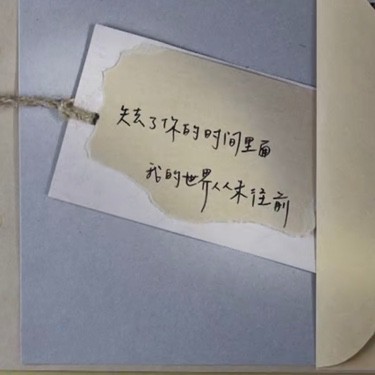 失去了你的时间里面
我的世界从未往前